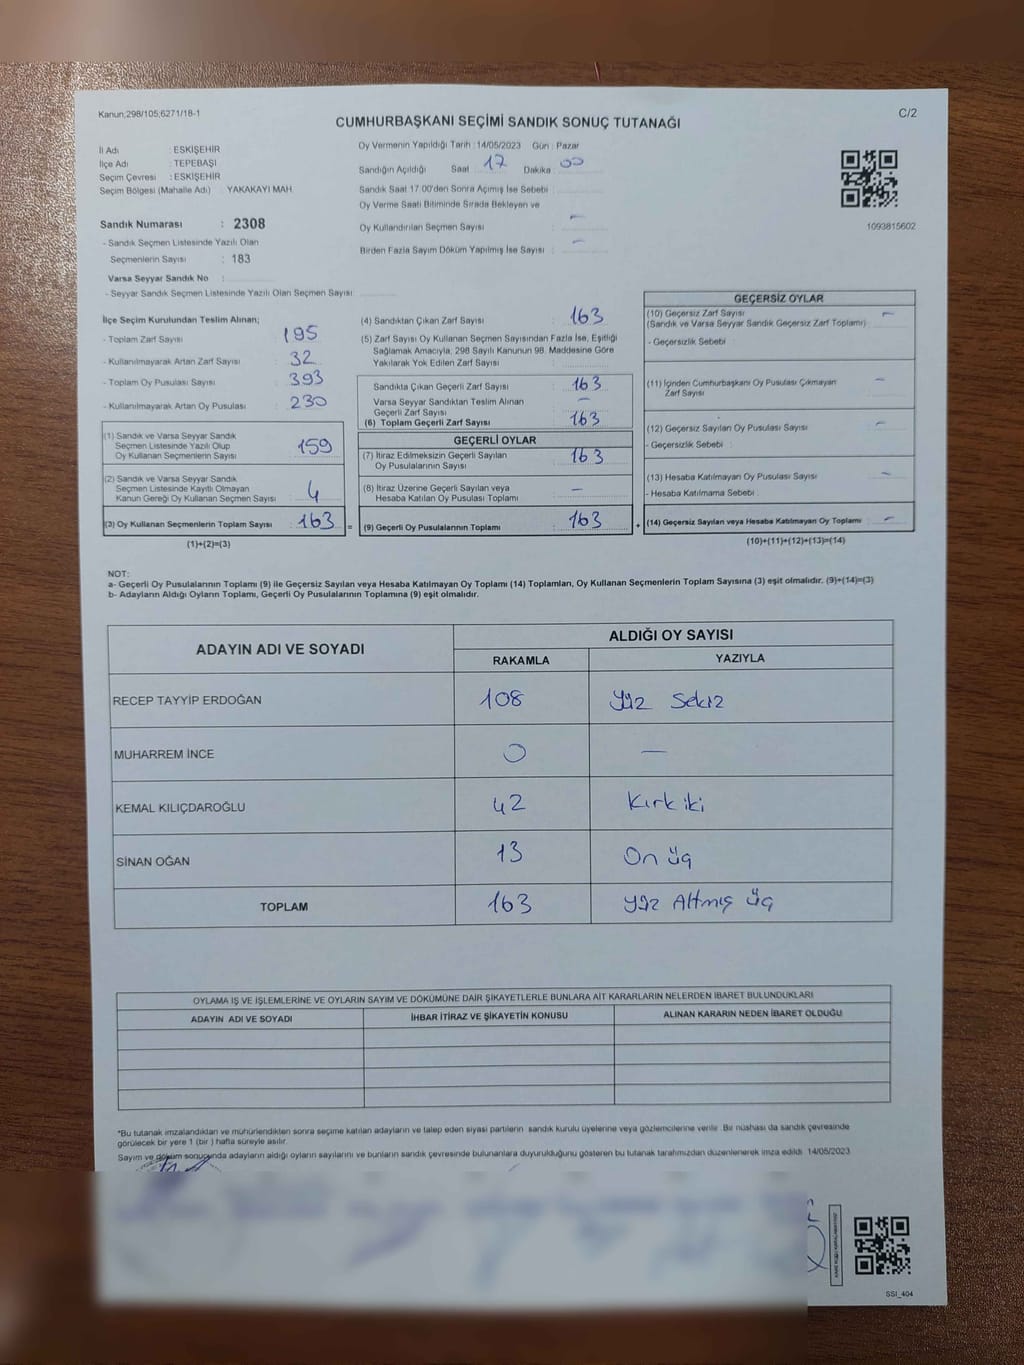 Kanun,298/105;6271/18-1
C/2
CUMHURBAŞKANI SEÇİMİ SANDIK SONUÇ TUTANAĞI
İl Adı : ESKİŞEHİR
İlçe Adı : TEPEBAŞI
Seçim Çevresi : ESKİŞEHİR
Seçim Bölgesi (Mahalle Adı) : YAKAKAYI MAH.
Sandık Numarası : 2308
- Sandık Seçmen Listesinde Yazılı Olan
Seçmenlerin Sayısı : 183
Varsa Seyyar Sandık No :
- Seyyar Sandık Seçmen Listesinde Yazılı Olan Seçmen Sayısı:
Oy Vermenin Yapıldığı Tarih : 14/05/2023 Gün : Pazar
Sandığın Açıldığı Saat 17 Dakika : 00
Sandık Saat 17:00'den Sonra Açımış İse Sebebi :
Oy Verme Saati Bitiminde Sırada Bekleyen ve
Oy Kullandırılan Seçmen Sayısı : -
Birden Fazla Sayım Döküm Yapılmış İse Sayısı : -
1093815602
İlçe Seçim Kurulundan Teslim Alınan;
- Toplam Zarf Sayısı : 195
- Kullanılmayarak Artan Zarf Sayısı : 32
- Toplam Oy Pusulası Sayısı : 393
- Kullanılmayarak Artan Oy Pusulası : 230
(1) Sandık ve Varsa Seyyar Sandık
Seçmen Listesinde Yazılı Olup
Oy Kullanan Seçmenlerin Sayısı : 159
(2) Sandık ve Varsa Seyyar Sandık
Seçmen Listesinde Kayıtlı Olmayan
Kanun Gereği Oy Kullanan Seçmen Sayısı : 4
(3) Oy Kullanan Seçmenlerin Toplam Sayısı : 163 =
(1)+(2)=(3)
(4) Sandıktan Çıkan Zarf Sayısı : 163
(5) Zarf Sayısı Oy Kullanan Seçmen Sayısından Fazla İse, Eşitliği
Sağlamak Amacıyla, 298 Sayılı Kanunun 98. Maddesine Göre
Yakılarak Yok Edilen Zarf Sayısı :
Sandıkta Çıkan Geçerli Zarf Sayısı : 163
Varsa Seyyar Sandıktan Teslim Alınan
Geçerli Zarf Sayısı : -
(6) Toplam Geçerli Zarf Sayısı : 163
GEÇERLİ OYLAR
(7) İtiraz Edilmeksizin Geçerli Sayılan
Oy Pusulalarının Sayısı : 163
(8) İtiraz Üzerine Geçerli Sayılan veya
Hesaba Katılan Oy Pusulası Toplamı : -
(9) Geçerli Oy Pusulalarının Toplamı : 163 +
GEÇERSİZ OYLAR
(10) Geçersiz Zarf Sayısı : -
(Sandık ve Varsa Seyyar Sandık Geçersiz Zarf Toplamı)
- Geçersizlik Sebebi :
(11) İçinden Cumhurbaşkanı Oy Pusulası Çıkmayan : -
Zarf Sayısı
(12) Geçersiz Sayılan Oy Pusulası Sayısı : -
- Geçersizlik Sebebi :
(13) Hesaba Katılmayan Oy Pusulası Sayısı : -
- Hesaba Katılmama Sebebi :
(14) Geçersiz Sayılan veya Hesaba Katılmayan Oy Toplamı : -
(10)+(11)+(12)+(13)=(14)
NOT:
a- Geçerli Oy Pusulalarının Toplamı (9) ile Geçersiz Sayılan veya Hesaba Katılmayan Oy Toplamı (14) Toplamları, Oy Kullanan Seçmenlerin Toplam Sayısına (3) eşit olmalıdır. (9)+(14)=(3)
b- Adayların Aldığı Oyların Toplamı, Geçerli Oy Pusulalarının Toplamına (9) eşit olmalıdır.
ADAYIN ADI VE SOYADI
ALDIĞI OY SAYISI
RAKAMLA YAZIYLA
RECEP TAYYİP ERDOĞAN 108 Yüz Sekiz
MUHARREM İNCE 0 —
KEMAL KILIÇDAROĞLU 42 Kırk iki
SİNAN OĞAN 13 On üç
TOPLAM 163 Yüz Altmış üç
OYLAMA İŞ VE İŞLEMLERİNE VE OYLARIN SAYIM VE DÖKÜMÜNE DAİR ŞİKAYETLERLE BUNLARA AİT KARARLARIN NELERDEN İBARET BULUNDUKLARI
ADAYIN ADI VE SOYADI İHBAR İTİRAZ VE ŞİKAYETİN KONUSU ALINAN KARARIN NEDEN İBARET OLDUĞU
*Bu tutanak imzalandıktan ve mühürlendikten sonra seçime katılan adayların ve talep eden siyasi partilerin sandık kurulu üyelerine veya gözlemcilerine verilir. Bir nüshası da sandık çevresinde
görülecek bir yere 1 (bir ) hafta süreyle asılır.
Sayım ve döküm sonucunda adayların aldığı oyların sayılarını ve bunların sandık çevresinde bulunanlara duyurulduğunu gösteren bu tutanak tarafımızdan düzenlenerek imza edildi. 14/05/2023
SSI_404